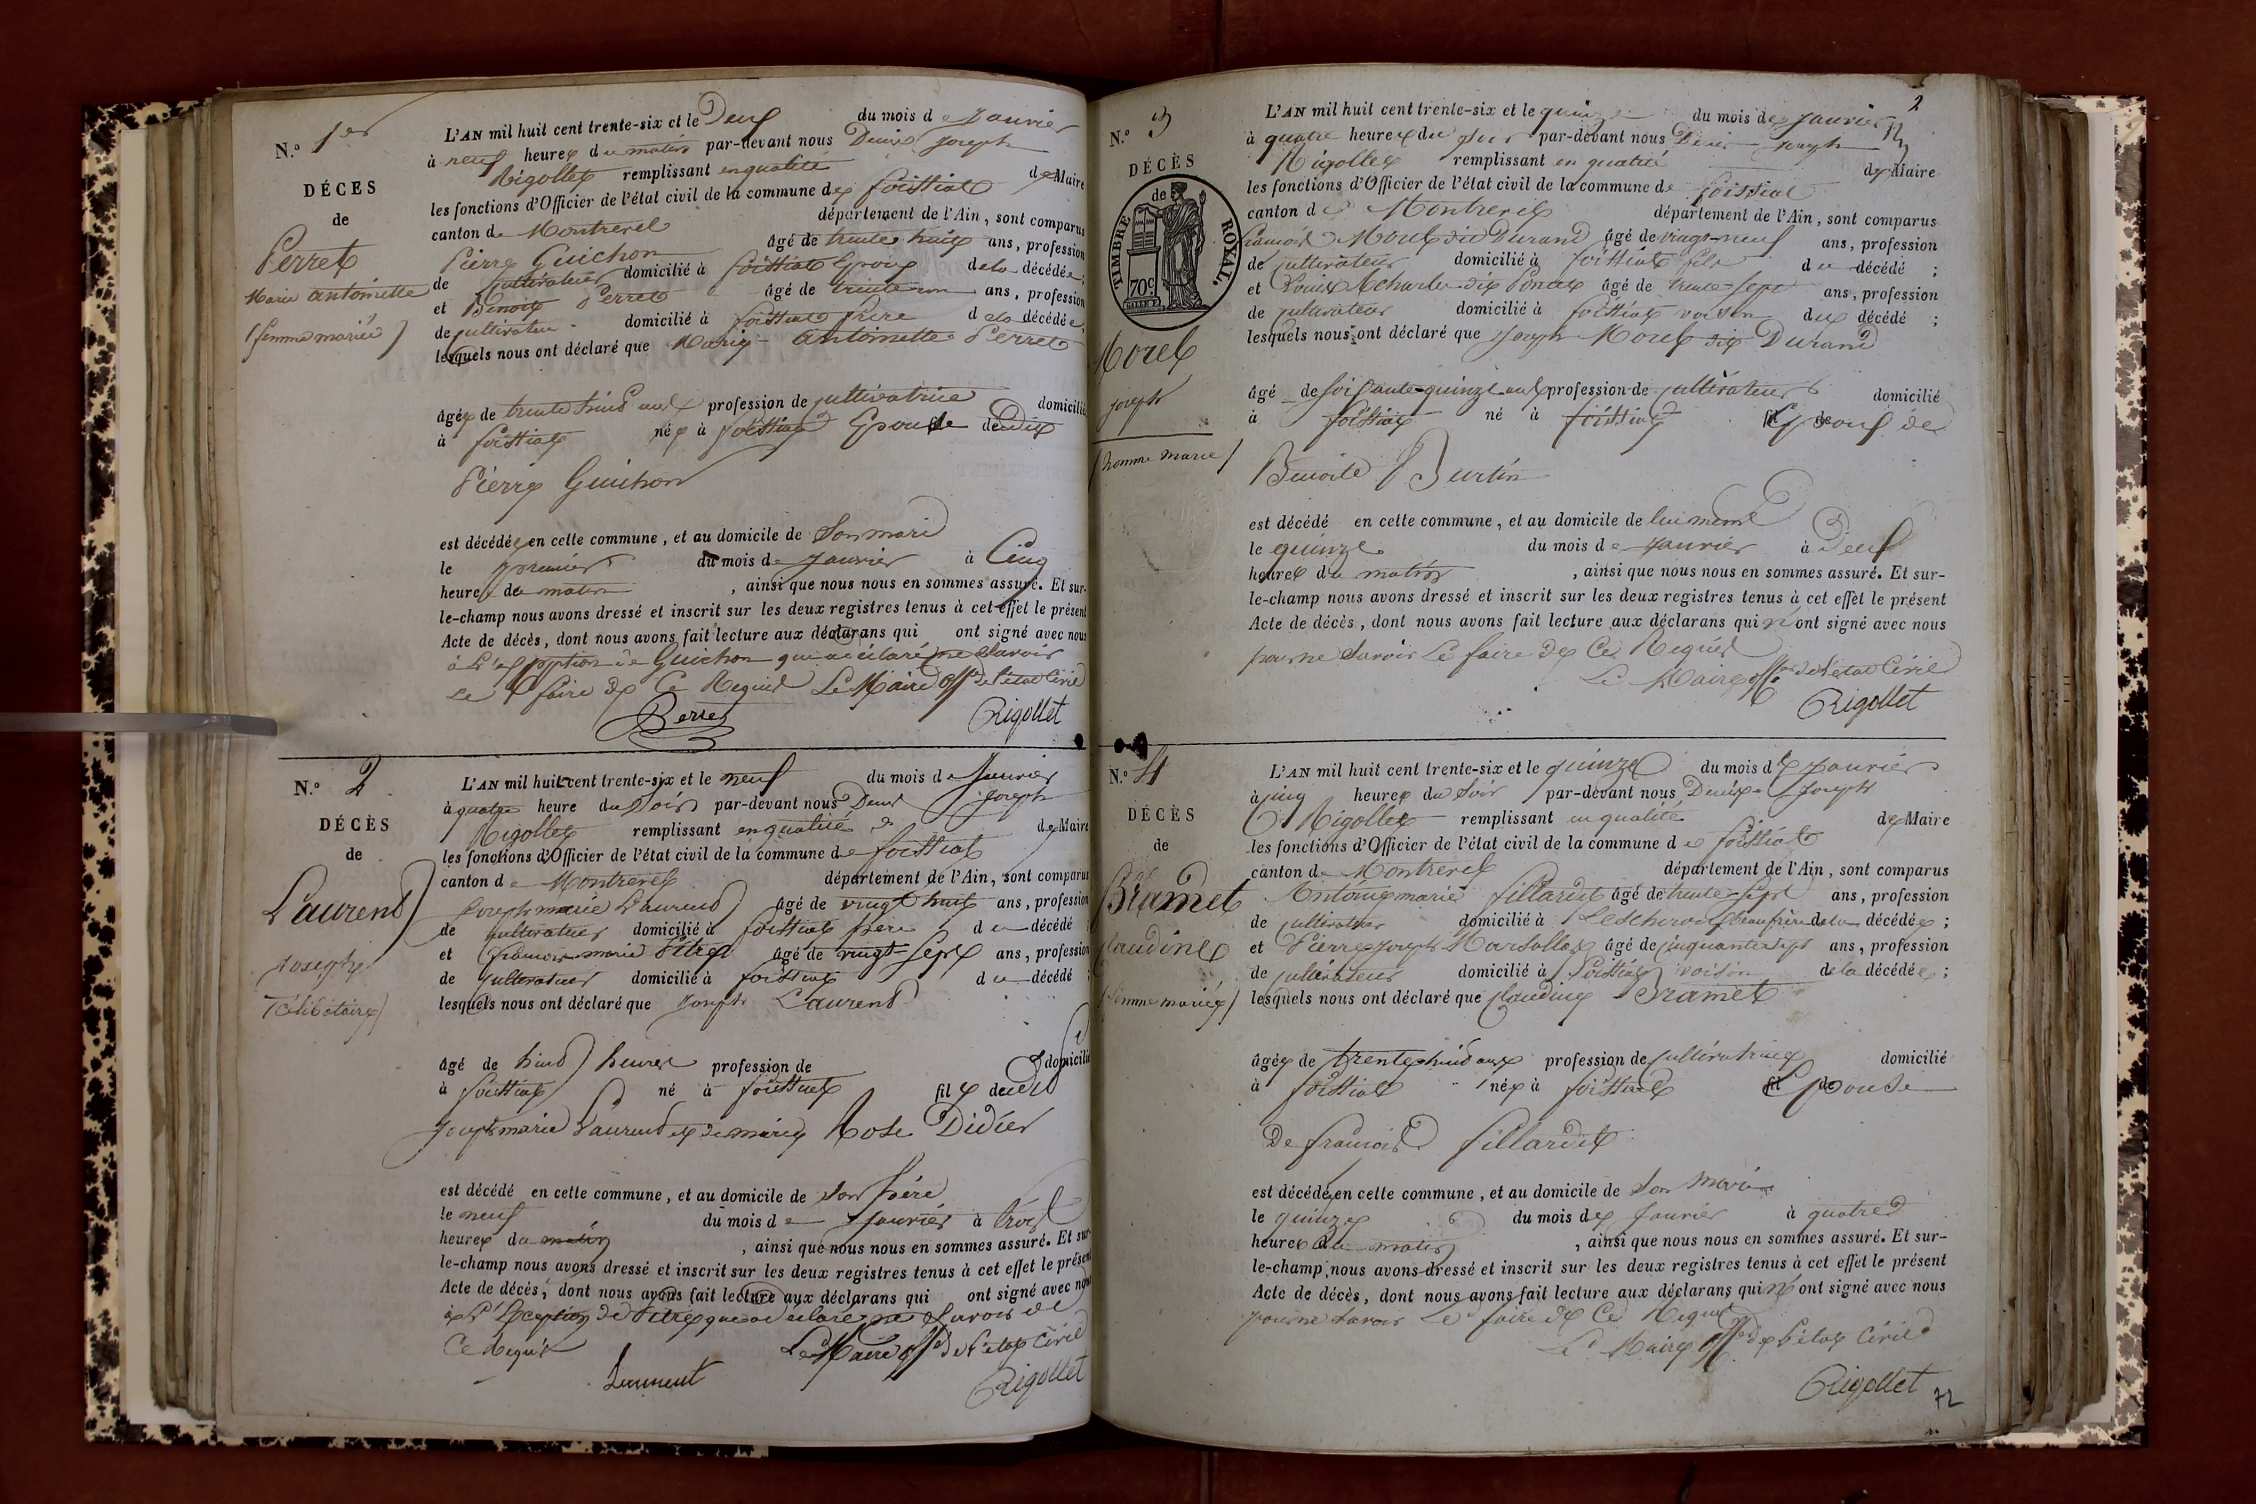 N.º 1er
DÉCES
de
Perret
Marie antoinette
(femme mariée)
L'AN mil huit cent trente-six et le Deux du mois de Janvier
à neuf heures du matin par-devant nous Denis Joseph
Rigollet remplissant en qualité de Maire
les fonctions d'Officier de l'état civil de la commune de foissiat
canton de Montrevel département de l'Ain, sont comparus
Pierre Guichon âgé de trente huit ans, profession
de cultivateur domicilié à foissiat Epoux de la décédée;
et Benoit Perret âgé de trente un ans, profession
de cultivateur domicilié à foissiat frère de la décédée,
lesquels nous ont déclaré que Marie antoinette Perret
âgée de trente huit ans profession de cultivatrice domicilié
à foissiat née à foissiat Epouse dudit
Pierre Guichon
est décédée en cette commune, et au domicile de Son mari
le premier du mois de Janvier à Cinq
heures du matin, ainsi que nous nous en sommes assuré. Et sur-
le-champ nous avons dressé et inscrit sur les deux registres tenus à cet effet le présent
Acte de décès, dont nous avons fait lecture aux déclarans qui ont signé avec nous
à l'exception de Guichon qui a déclaré ne Savoir
Le faire de Ce Requis Le Maire off de l'état Civil
Perret Rigollet
N.º 2
DÉCÈS
de
Laurent
Joseph
(Célibataire)
L'AN mil huit cent trente-six et le neuf du mois de Janvier
à quatre heure du Soir par-devant nous Denis Joseph
Rigollet remplissant en qualité de Maire
les fonctions d'Officier de l'état civil de la commune de foissiat
canton de Montrevel département de l'Ain, sont comparus
Joseph marie Laurent âgé de vingt huit ans, profession
de cultivateur domicilié à foissiat père du décédé;
et francois marie Pitre âgé de vingt Sept ans, profession
de cultivateur domicilié à foissiat du décédé;
lesquels nous ont déclaré que Joseph Laurent
âgé de huit heures profession de domicilié
à foissiat né à foissiat fils dudit
Joseph marie Laurent et de marie Rose Didier
est décédé en cette commune, et au domicile de Son père
le neuf du mois de Janvier à trois
heures du matin, ainsi que nous nous en sommes assuré. Et sur-
le-champ nous avons dressé et inscrit sur les deux registres tenus à cet effet le présent
Acte de décès, dont nous avons fait lecture aux déclarans qui ont signé avec nous
à l'Exception de Pitre qui a déclaré ne Savoir de
Ce Requis Le Maire off de l'état Civil
Laurent Rigollet
2
N.º 3
DÉCÈS
de
TIMBRE ROYAL.
70c.
Morel
joseph
(homme marié)
L'AN mil huit cent trente-six et le quinze du mois de Janvier
à quatre heures du Soir par-devant nous Denis Joseph
Rigollet remplissant en qualité de Maire
les fonctions d'Officier de l'état civil de la commune de foissiat
canton de Montrevel département de l'Ain, sont comparus
francois Morel dit Durand âgé de vingt-neuf ans, profession
de cultivateur domicilié à foissiat fils du décédé;
et Louis âgé de trente-Sept ans, profession
de cultivateur domicilié à foissiat voisin du décédé;
lesquels nous ont déclaré que Joseph Morel dit Durand
âgé de Soixante-quinze ans profession de cultivateur domicilié
à foissiat né à foissiat Epoux de
Benoite Burtin
est décédé en cette commune, et au domicile de lui meme
le quinze du mois de Janvier à Deux
heures du matin, ainsi que nous nous en sommes assuré. Et sur-
le-champ nous avons dressé et inscrit sur les deux registres tenus à cet effet le présent
Acte de décès, dont nous avons fait lecture aux déclarans qui n'ont signé avec nous
pour ne Savoir Le faire de Ce Requis
Le Maire off de l'état Civil
Rigollet
N.º 4
DÉCÈS
de
Bramet
Claudine
(femme mariée)
L'AN mil huit cent trente-six et le quinze du mois de Janvier
à cinq heures du Soir par-devant nous Denis Joseph
Rigollet remplissant en qualité de Maire
les fonctions d'Officier de l'état civil de la commune de foissiat
canton de Montrevel département de l'Ain, sont comparus
Antoine marie fillardet âgé de trente-Sept ans, profession
de cultivateur domicilié à Lescheroux beaufrère de la décédée;
et Pierre Joseph Marsollas âgé de cinquante Sept ans, profession
de cultivateur domicilié à foissiat voisin de la décédée;
lesquels nous ont déclaré que Claudine Bramet
âgée de trente huit ans profession de cultivatrice domicilié
à foissiat née à foissiat Epouse
De francois fillardet
est décédée en cette commune, et au domicile de Son mari
le quinze du mois de Janvier à quatre
heures du matin, ainsi que nous nous en sommes assuré. Et sur-
le-champ nous avons dressé et inscrit sur les deux registres tenus à cet effet le présent
Acte de décès, dont nous avons fait lecture aux déclarans qui n'ont signé avec nous
pour ne Savoir Le faire de Ce Requis
Le Maire off de l'état Civil
Rigollet
72